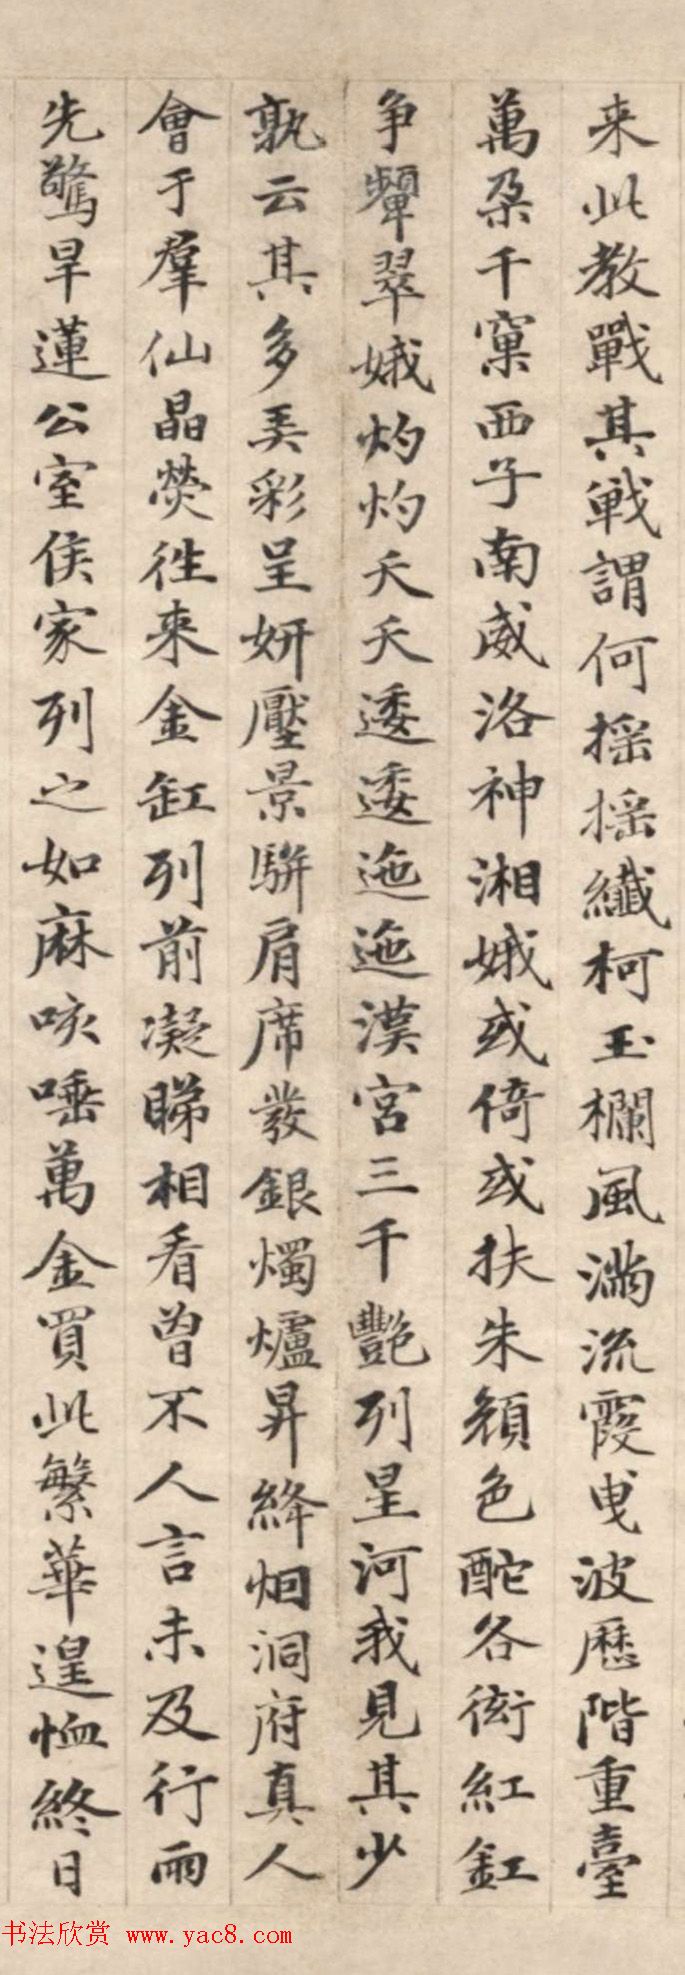 来此教戰其戰謂何揺揺纖柯玉欄風滿流霞曳波歷階重臺
萬朶千窠西子南威洛神湘娥或倚或扶朱顔色酡各衒紅釭
争顰翠娥灼灼夭夭逶逶迤迤漢宮三千艷列星河我見其少
孰云其多弄彩呈妍壓景駢肩席發銀燭爐昇絳烟洞府真人
會于羣仙晶熒徃來金缸列前凝睇相看曾不人言未及行雨
先驚旱蓮公室侯家列之如麻咳唾萬金買此繁華遑恤終日
书法欣赏 www.yac8.com